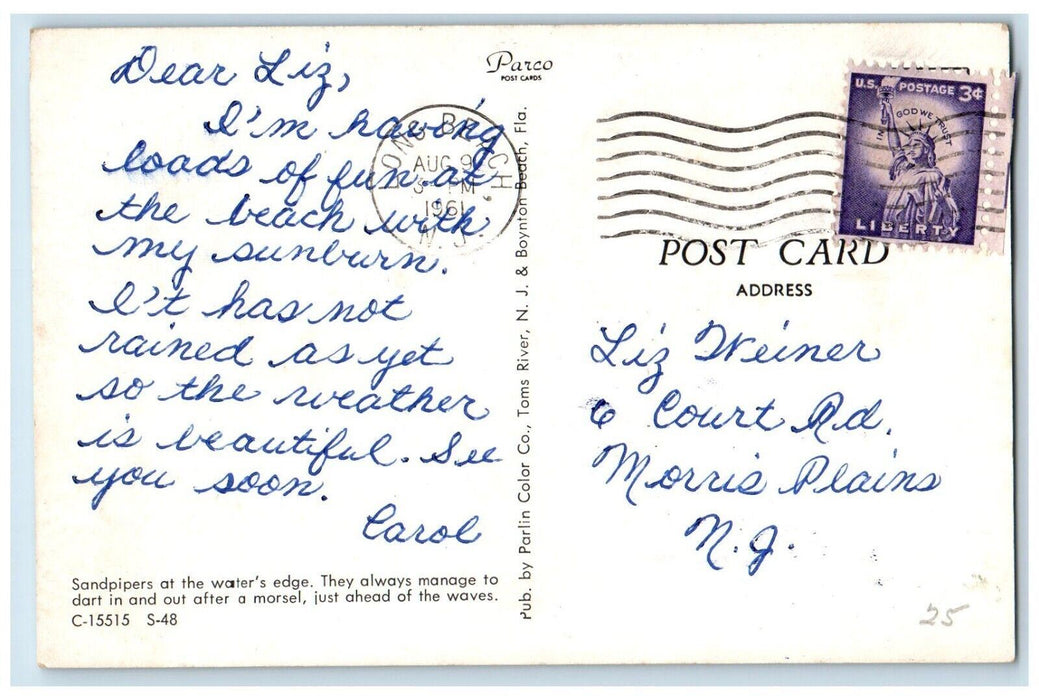 Dear Liz,
I'm having
loads of fun at
the beach with
my sunburn.
I't has not
rained as yet
so the weather
is beautiful. See
you soon.
Carol
Sandpipers at the water's edge. They always manage to
dart in and out after a morsel, just ahead of the waves.
C-15515 S-48
Parco
POST CARDS
LONG BRANCH
AUG 9
3 PM
1961
N.J.
Pub. by Parlin Color Co., Toms River, N. J. & Boynton Beach, Fla.
U.S. POSTAGE 3¢
IN GOD WE TRUST
LIBERTY
POST CARD
ADDRESS
Liz Weiner
6 Court Rd.
Morris Plains
N.J.
25